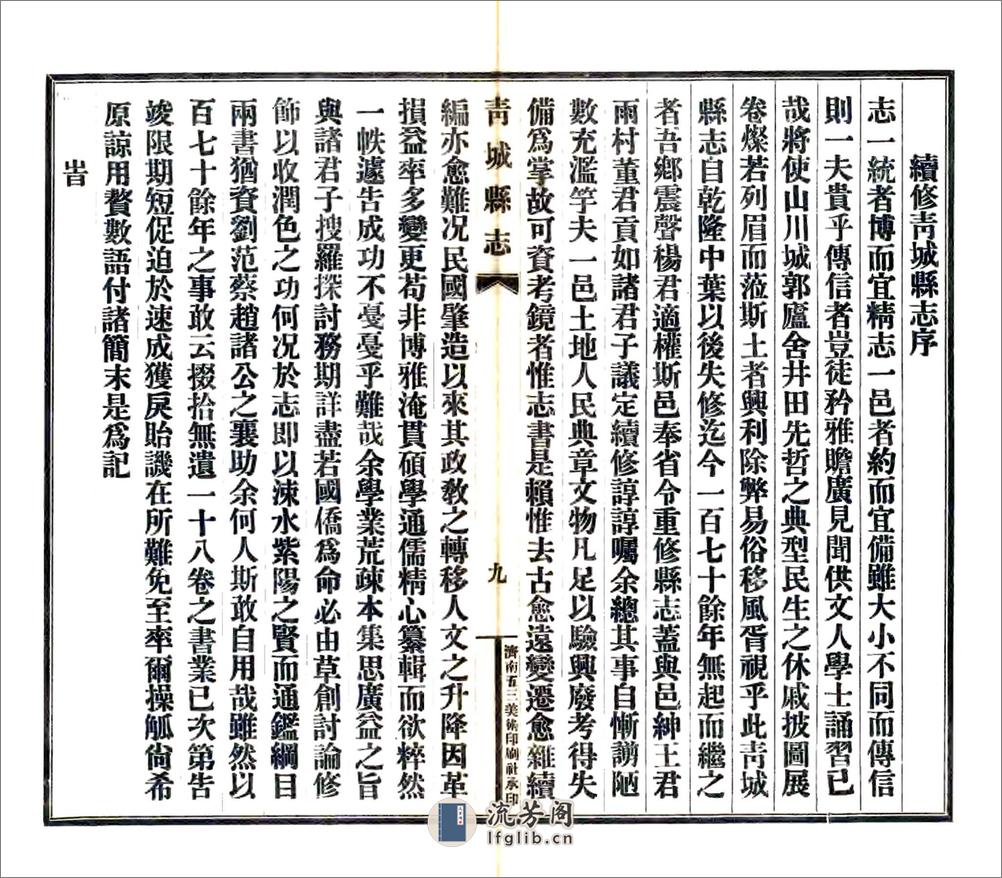 續修青城縣志序
志一統者博而宜精志一邑者約而宜備雖大小不同而傳信
則一夫貴乎傳信者豈徒矜雅贍廣見聞供文人學士誦習已
哉將使山川城郭廬舍井田先哲之典型民生之休戚披圖展
卷燦若列眉而蒞斯土者興利除弊易俗移風胥視乎此青城
縣志自乾隆中葉以後失修迄今一百七十餘年無起而繼之
者吾鄉震聲楊君適權斯邑奉省令重修縣志蓋與邑紳王君
雨村董君貢如諸君子議定續修諄諄囑余總其事自慚謭陋
數充濫竽夫一邑土地人民典章文物凡足以驗興廢考得失
備爲掌故可資考鏡者惟志書是賴惟去古愈遠變遷愈雜續
青城縣志
九
濟南五三美術印刷社承印
編亦愈難况民國肇造以來其政敎之轉移人文之升降因革
損益率多變更苟非博雅淹貫碩學通儒精心纂輯而欲粹然
一帙遽告成功不戞戞乎難哉余學業荒竦本集思廣益之旨
與諸君子搜羅探討務期詳盡若國僑爲命必由草創討論修
飾以收潤色之功何况於志即以涑水紫陽之賢而通鑑綱目
兩書猶資劉范蔡趙諸公之襄助余何人斯敢自用哉雖然以
百七十餘年之事敢云掇拾無遺一十八卷之書業已次第告
竣限期短促迫於速成獲戾貽譏在所難免至率爾操觚尙希
原諒用贅數語付諸簡末是爲記
流芳阁
lfglib.cn